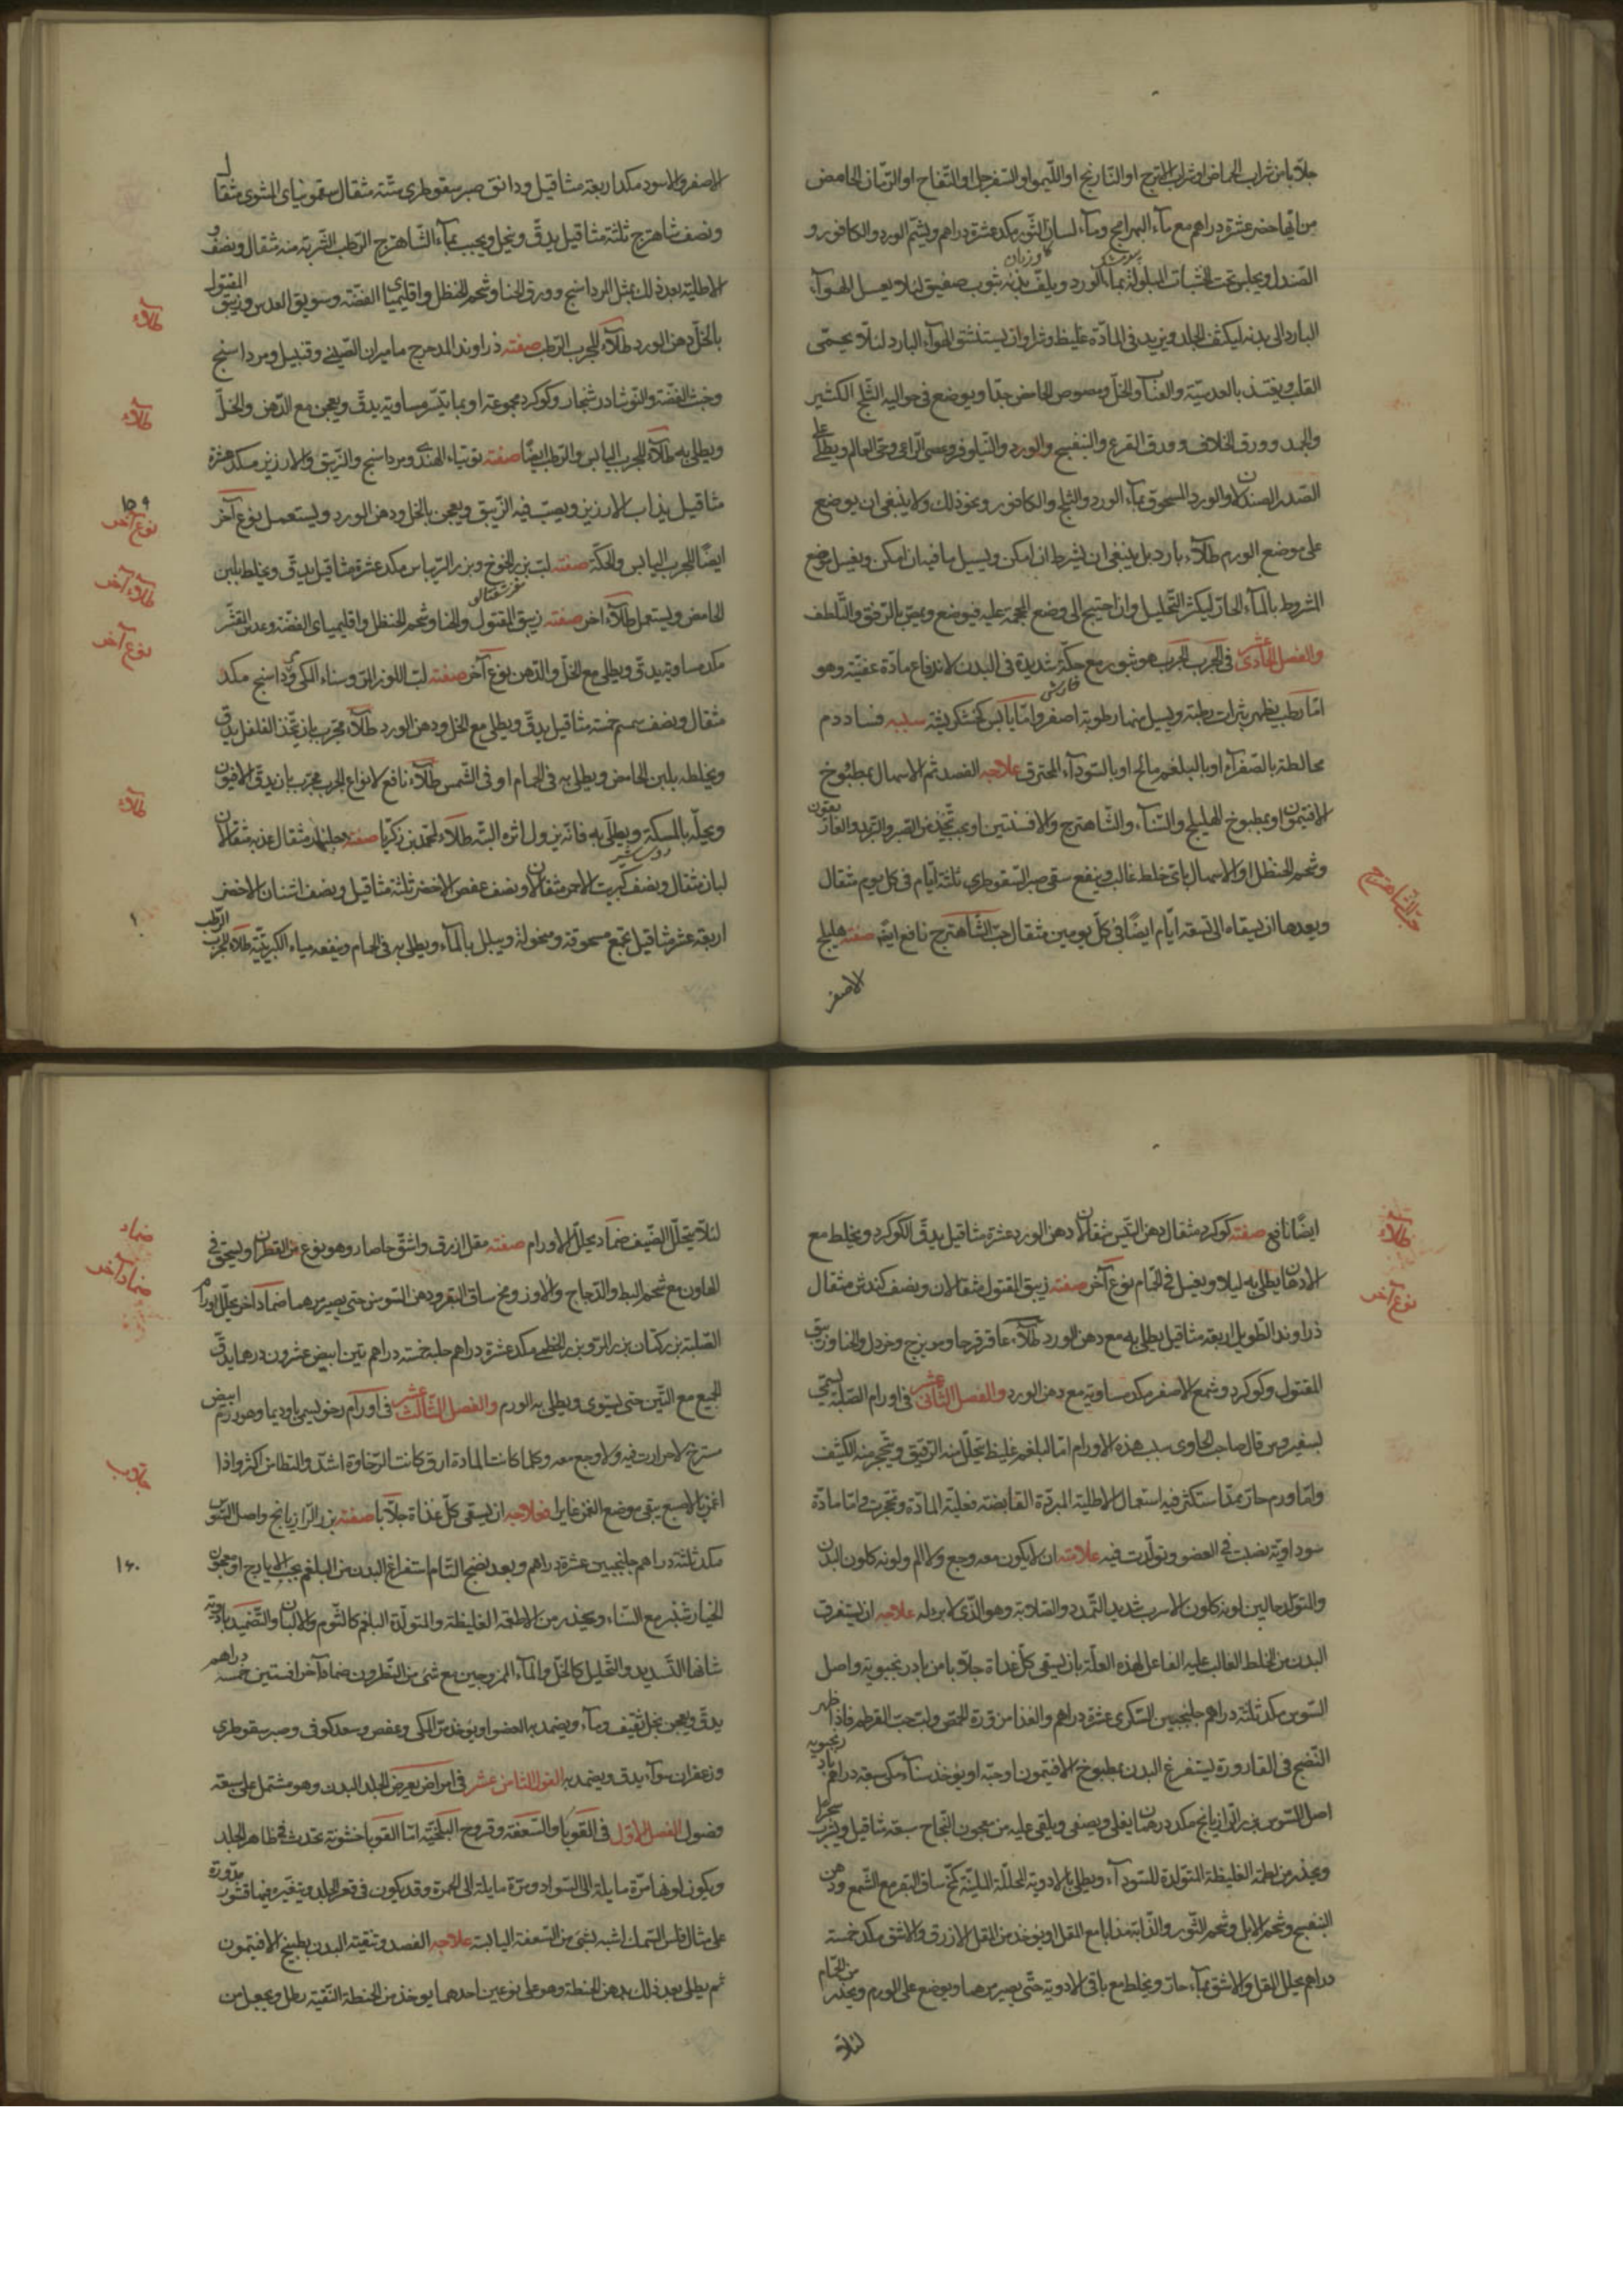 جلابا من شراب الحماض او شراب الاترج او النارنج او الليمو او السفرجل او التفاح او الرمان الحامض
من ايها حضر عشرة دراهم مع ماء البهرامج وماء لسان الثور مكد عشرة دراهم ويشم الورد والكافور و
الصندل ويجلس تحت الخشبات المبلولة بماء الورد ويلف بدنه بثوب صفيق لئلا يصل الهواء
البارد الى بدنه ليكثف الجلد ويزيد في المادة غليظ وشراوان يستنشق الهواء البارد لئلا يحمى
القلب ويغتذ بالعدسية والعناب والخل ومصوص الحامض جدا ويوضع في حواليه الثلج الكثير
والجمد وورق الخلاف وورق القرع والبنفسج والورد والنيلوفر وعصى الراعى وحى العالم ويطلى على
الصدر الصندلان والورد المسحوق بماء الورد والثلج والكافور ونحو ذلك ولا ينبغى ان يوضع
على موضع الورم طلاء بارد بل ينبغى ان يشرط ان امكن ويسيل ما فيه ان امكن ويغسل موضع
الشروط بالماء الحار ليكثر التحليل وان احتيج الى وضع المحجمة عليه فيوضع ويمص بالرفق والتلطف
والفصل الحادى عشر فى الجرب الجرب هو بثور مع حكة شديدة فى البدن لاندفاع مادة عفنية وهو
اما رطب يظهر بثرات رطبة ويسيل منها رطوبة اصفر واما يابس كخشكريشة سببه فساد دم
مخالطة بالصفراء او بالبلغم مالح او بالسوداء المحترق علاجه الفصد ثم الاسهال بمطبوخ
الافتيمون او بمطبوخ الهليلج والسناء والشاهترج والافسنتين او بحب تتخذ من الصبر والتربد والغاريقون
وشحم الحنظل او الاسهال باى خلط غالب وينفع سقى صبر السقوطرى ثلثة ايام فى كل يوم مثقال
وبعدها ان يسقاه الى تسعة ايام ايضا فى كل يومين مثقال حب الشاهترج نافع ايضا صفته هليلج
حب الشاهترج
الاصفر
الاصفر والاسود مكد اربعة مثاقيل ودانق صبر سقوطرى ستة مثقال سقمونياى المشوى مثقال
ونصف شاهترج ثلثة مثاقيل يدق وينخل ويحبب بماء الشاهترج الرطب الشربة منه مثقال ونصف و
الاطلية بعد ذلك بمثل المرداسنج وورق الحنا وشحم الحنظل واقليمياى الفضة وسويق العدس وزيبق المقتول
بالخل ودهن الورد طلاء للجرب الرطب صفته زراوند المدحرج ماميران الصينى وقنبيل ومرداسنج
وخبث الفضة والنوشادر شنجار وكوكرد مجموعة او بما تيسر مساوية يدق ويعجن مع الدهن والخل
ويطلى به طلاء للجرب اليابس والرطب ايضا صفته توتياء الهندى ومرداسنج والزيبق والارزيز مكد عشرة
مثاقيل يذاب الارزيز ويصب فيه الزيبق ويعجن بالخل ودهن الورد ويستعمل نوع آخر
ايضا للجرب اليابس والحكة صفته لب بزر الخوخ وبزر الريباس مكد عشرة مثاقيل يدق ويخلط بلبن
الحامض ويستعمل طلاء اخر صفته زيبق المقتول والحنا وشحم الحنظل واقليمياى الفضة وعدس المقشر
مكد مساوية يدق ويطلى مع الخل والدهن نوع آخر صفته لب اللوز المر وسناء المكى ومرداسنج مكد
مثقال ونصف سمسم خمسة مثاقيل يدق ويطلى مع الخل ودهن الورد طلاء مجرب بان يتخذ الفلفل يدق
ويخلطه بلبن الحامض ويطلى به فى الحمام او فى الشمس طلاء نافع لانواع الجرب مجرب بان يدق الافيون
ويحله بالمسكة ويطلى به فانه يزول اثره البتة طلاء لمحمد بن زكريا صفته
لبان مثقال ونصف كبريت الاحمر مثقالان ونصف عفص الاخضر ثلثة مثاقيل ونصف اشنان الاخضر
اربعة عشر مثاقيل تجمع مسحوقة ومنخولة ويبلل بالماء ويطلى به فى الحمام وينفعه مياه الكبريتية طلاء للجرب الرطب
طلاء
طلاء
١٥٩
نوع آخر
طلاء آخر
نوع آخر
طلاء
ايضا نافع صفته كوكرد مثقال دهن التين مثقالان دهن الورد عشرة مثاقيل يدق الكوكرد ويخلط مع
الادهان يطلى به ليلا ويغسل فى الحمام نوع آخر صفته زيبق المقتول مثقالان ونصف كندش مثقال
زراوند الطويل اربعة مثاقيل يطلى به مع دهن الورد طلاء عاقرقرحا ومويزج وخردل والحنا وزيبق
المقتول وكوكرد وشمع الاصفر مكد مساوية مع دهن الورد والفصل الثانى عشر فى اورام الصلبة يسمى
بسفيروس قال صاحب الحاوى سبب هذه الاورام اما البلغم غليظ تحلل منه الرقيق وتحجر منه الكثيف
واما ورم حار مما استكثر فيه استعمال الاطلية المبردة القابضة فغلبة المادة وتحجرت واما مادة
سوداوية نضبت فى العضو وتولدت فيه علامته ان لا يكون معه وجع ولا الم ولونه كلون البدن
والمتولد حالين لونه كلون الاسرب شديد التمدد والصلابة وهو الذى لا برء له علاجه ان يستفرق
البدن من الخلط الغالب عليه الفاعل لهذه العلة بان يسقى كل غداة جلابا من بادرنجبوية واصل
السوس مكد ثلثة دراهم جلنجبين السكرى عشرة دراهم والغذا مزورة الحمص ولب حب القرطم فاذا ظهر
النضج فى القارورة يستفرغ البدن بمطبوخ الافتيمون او حبه او يؤخذ سناء مكى سبعة دراهم بادرنجبويه
اصل السوس بزر رازيانج مكد درهمان يغلى ويصفى ويلقى عليه من معجون النجاح سبعة مثاقيل ويشرب سحرا
ويحذر من اطعمة الغليظة المتولدة للسوداء ويطلى بالادوية المحللة اللينة كمخ ساق البقر مع الشمع ودهن
البنفسج وشحم الابل وشحم الثور والذابة مذابا مع المقل او يؤخذ من المقل الازرق والاشق مكد خمسة
دراهم يحلل المقل والاشق بماء حار ويخلط مع باقى الادوية حتى يصير مرهما ويوضع على الورم ويحذر من الحمام
طلاء
نوع آخر
لئلا
لئلا يتحلل الضيف ضماد يحلل الاورام صفته مقل ازرق واشق وهو نوع من القطران ويسحق فى
الهاون مع شحم البط والدجاج والاوز ومخ ساق البقر ودهن السوسن حتى يصير مرهما ضماد آخر يحلل اورام
الصلبة بزر كتان بزر المرو بزر الخطمى مكد عشرة دراهم حلبة خمسة دراهم تين ابيض عشرون درهما يدق
الجميع مع التين حتى يستوى ويطلى به الورم والفصل الثالث عشر فى اورام رخو يسمى باوديما وهو ورم ابيض
مسترخ لا حرارت فيه ولا وجع معه وكلما كانت المادة ارق كانت الرخاوة اشد والتطامن اكثر واذا
اغمز بالاصبع يبقى موضع الغمز غايرا فعلاجه ان يسقى كل غداة جلابا صفته بزر الرازيانج واصل السوس
مكد ثلثة دراهم جلنجبين عشرة دراهم وبعد نضج التام استفراغ البدن من البلغم بحب الايارج او معجون
الخيارشنبر مع السناء ويحذر من الاطعمة الغليظة والمتولدة البلغم كالثوم والالبان والتضميد بادوية
شانها التسديد والتحليل كالخل والماء الممزوجين مع شئ من النطرون ضماد آخر افسنتين خمسة دراهم
يدق ويعجن بخل ثقيف وماء ويضمد به العضو او يؤخذ من المكى وعفص وسعد كوفى وصبر سقوطرى
وزعفران سواء يدق ويضمد به القول الثامن عشر فى امراض يعرض الجلد البدن وهو مشتمل على سبعة
فصول الفصل الاول فى القوبا والسعفة وقروح البلخية اما القوبا خشونة تحدث فى ظاهر الجلد
ويكون لونها مرة مايلة الى السواد ومرة مايلة الى الحمرة وقد يكون فى قعر الجلد ويتغير فيها قشور مدورة
على مثال فلس السمك اشبه بشئ من السعفة اليابسة علاجه الفصد وتنقية البدن بطبيخ الافتيمون
ثم يطلى بعد ذلك بدهن الحنطة وهو على نوعين احدهما يؤخذ من الحنطة النقية رطل ويجعل من
ضماد
ضماد آخر
١٦٠